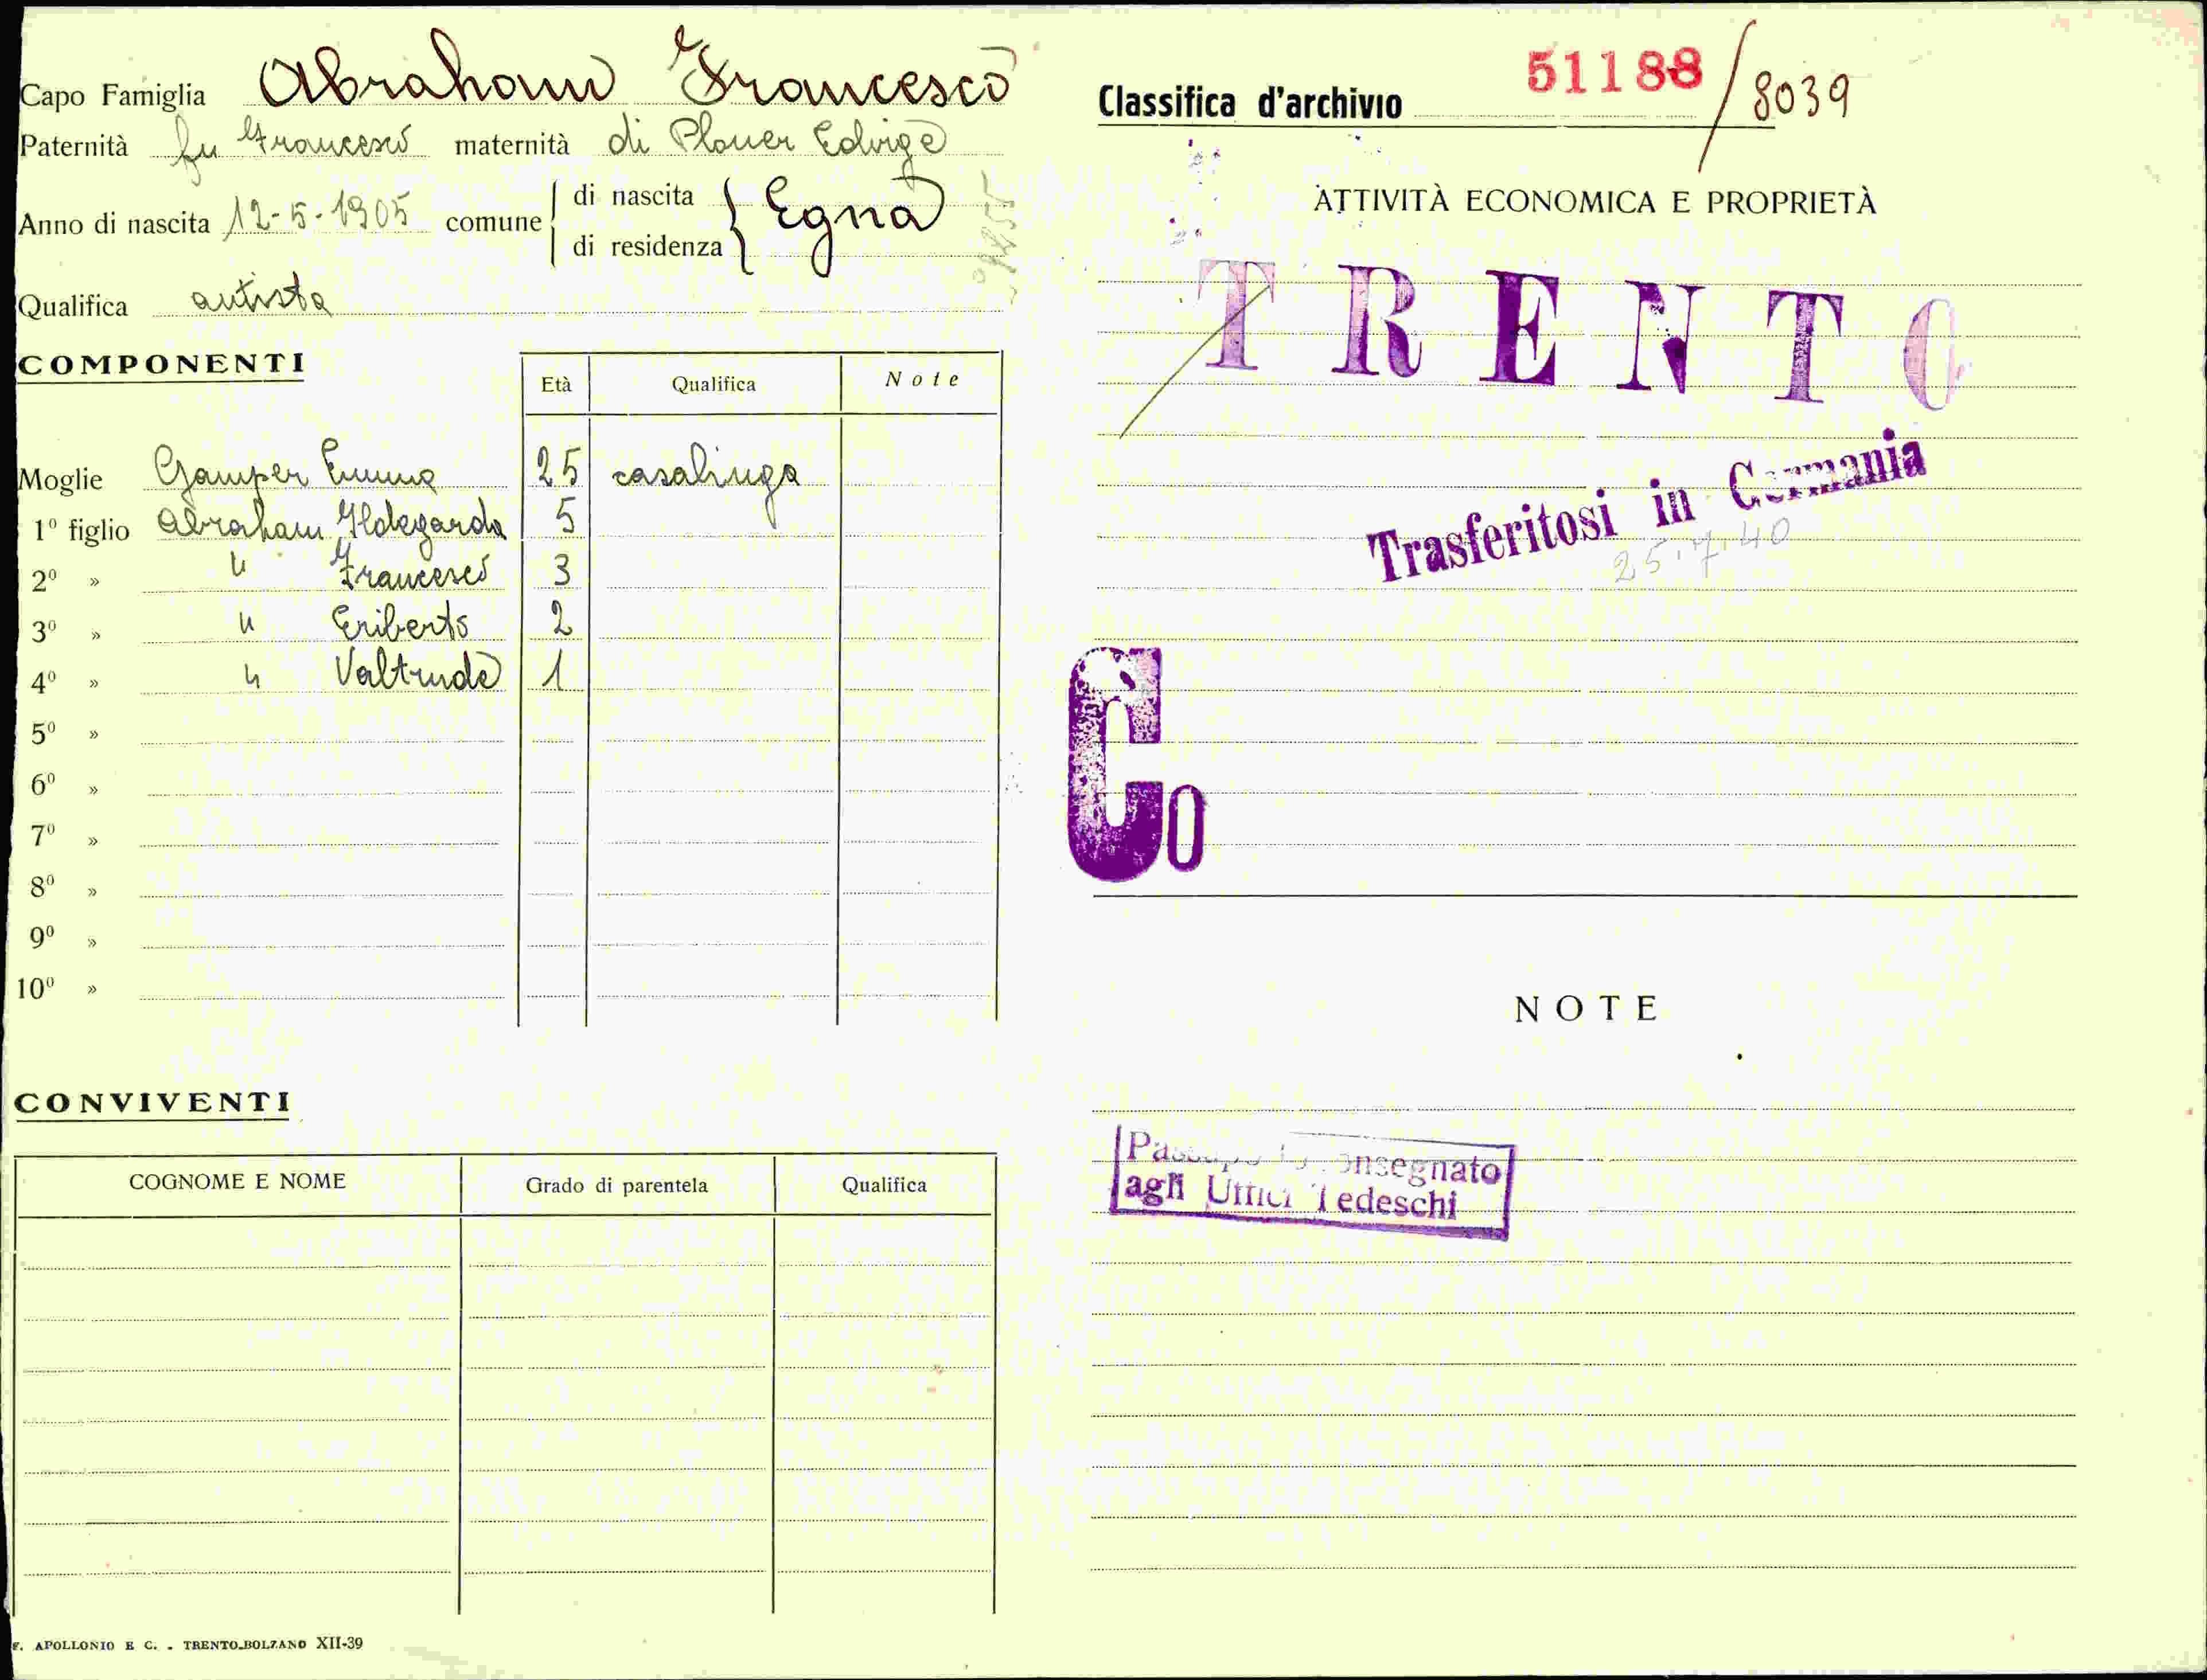 Capo Famiglia Abraham Francesco
Paternità fu Francesco maternità di Ploner Edvige
Anno di nascita 12-5-1905 comune di nascita di residenza Egna
Qualifica autista
COMPONENTI
Età Qualifica Note
Moglie Gamper Emma 25 casalinga
1º figlio Abraham Ildegarda 5
2º » " Francesco 3
3º » " Eriberto 2
4º » " Valtrude 1
5º »
6º »
7º »
8º »
9º »
10º »
CONVIVENTI
COGNOME E NOME Grado di parentela Qualifica
F. APOLLONIO E C. - TRENTO-BOLZANO XII-39
Classifica d'archivio 51188/8039
ATTIVITÀ ECONOMICA E PROPRIETÀ
TRENTO
Trasferitosi in Germania
25.7.40
Co
NOTE
Passaporto consegnato
agli Uffici Tedeschi